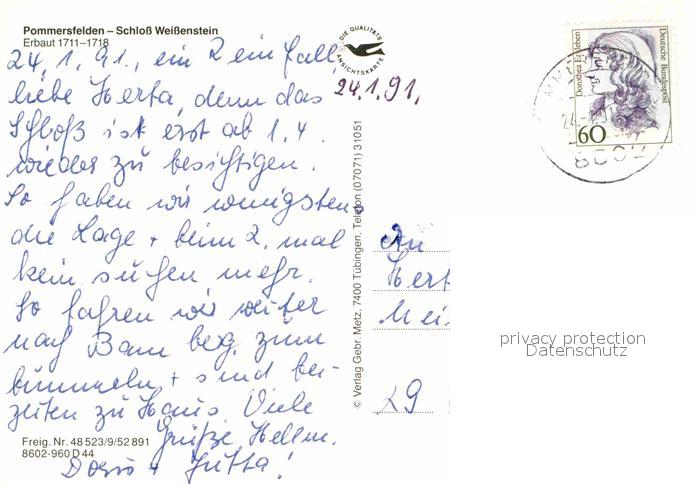 Pommersfelden – Schloß Weißenstein
Erbaut 1711–1718
24, 1, 91, ein Reinfall
liebe Herta, denn das
Schloß ist erst ab 1.4.
wieder zu besichtigen.
So haben wir wenigstens
die Lage + beim 2. mal
kein suchen mehr.
So fahren wir weiter
nach Bamberg, zum
bummeln, + sind bei-
zeiten zu Haus. Viele
Grüße Hellm.
Doris + Jutta!
Freig. Nr. 48 523/9/52 891
8602-960 D 44
DIE QUALITÄTS
ANSICHTSKARTE
24.1.91,
© Verlag Gebr. Metz, 7400 Tübingen, Telefon (07071) 31051
An
Hert
Mei
29
Dorothea Erxleben
Deutsche Bundespost
60
24.-1.91
privacy protection
Datenschutz